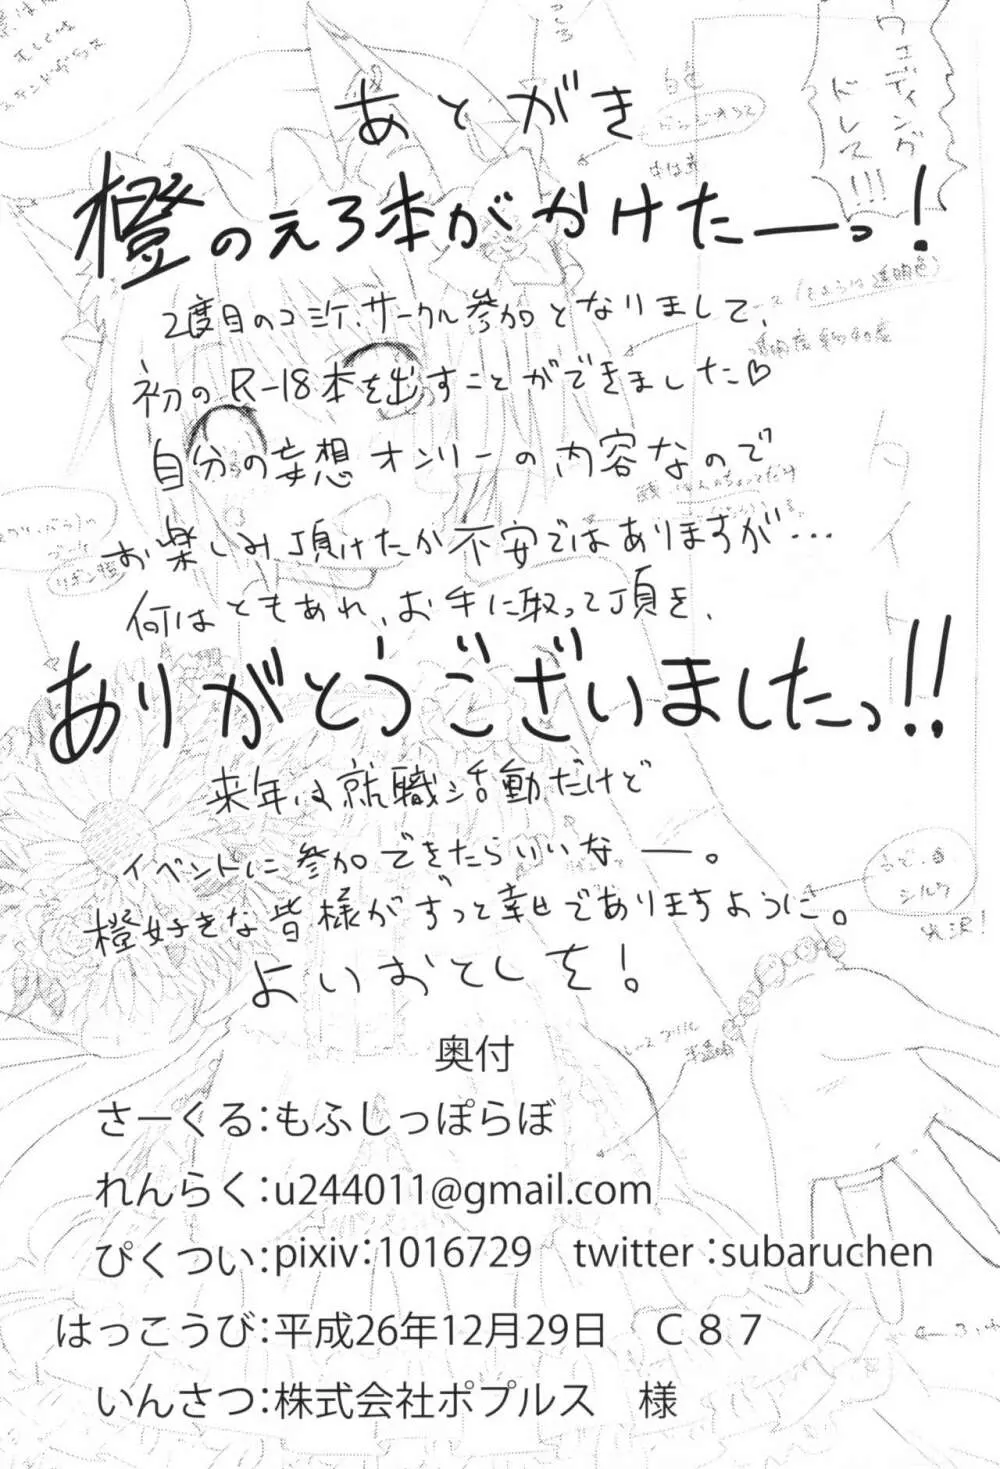 あとがき
橙のえろ本がかけたーっ!
2度目のコミケ、サークル参加となりまして、
初のR-18本を出すことができました♡
自分の妄想オンリーの内容なので
お楽しみ頂けたか不安ではありますが…
何はともあれ、お手に取って頂き、
ありがとうございましたっ!!
来年は就職活動だけど
イベントに参加できたらいいなー。
橙好きな皆様がずっと幸せでありますように。
よいおとしを!
奥付
さーくる:もふしっぽらぼ
れんらく:u244011@gmail.com
ぴくつい:pixiv:1016729 twitter:subaruchen
はっこうび:平成26年12月29日 C87
いんさつ:株式会社ポプルス 様
ウェディング
ドレス!!!
白色
シルク
光沢!